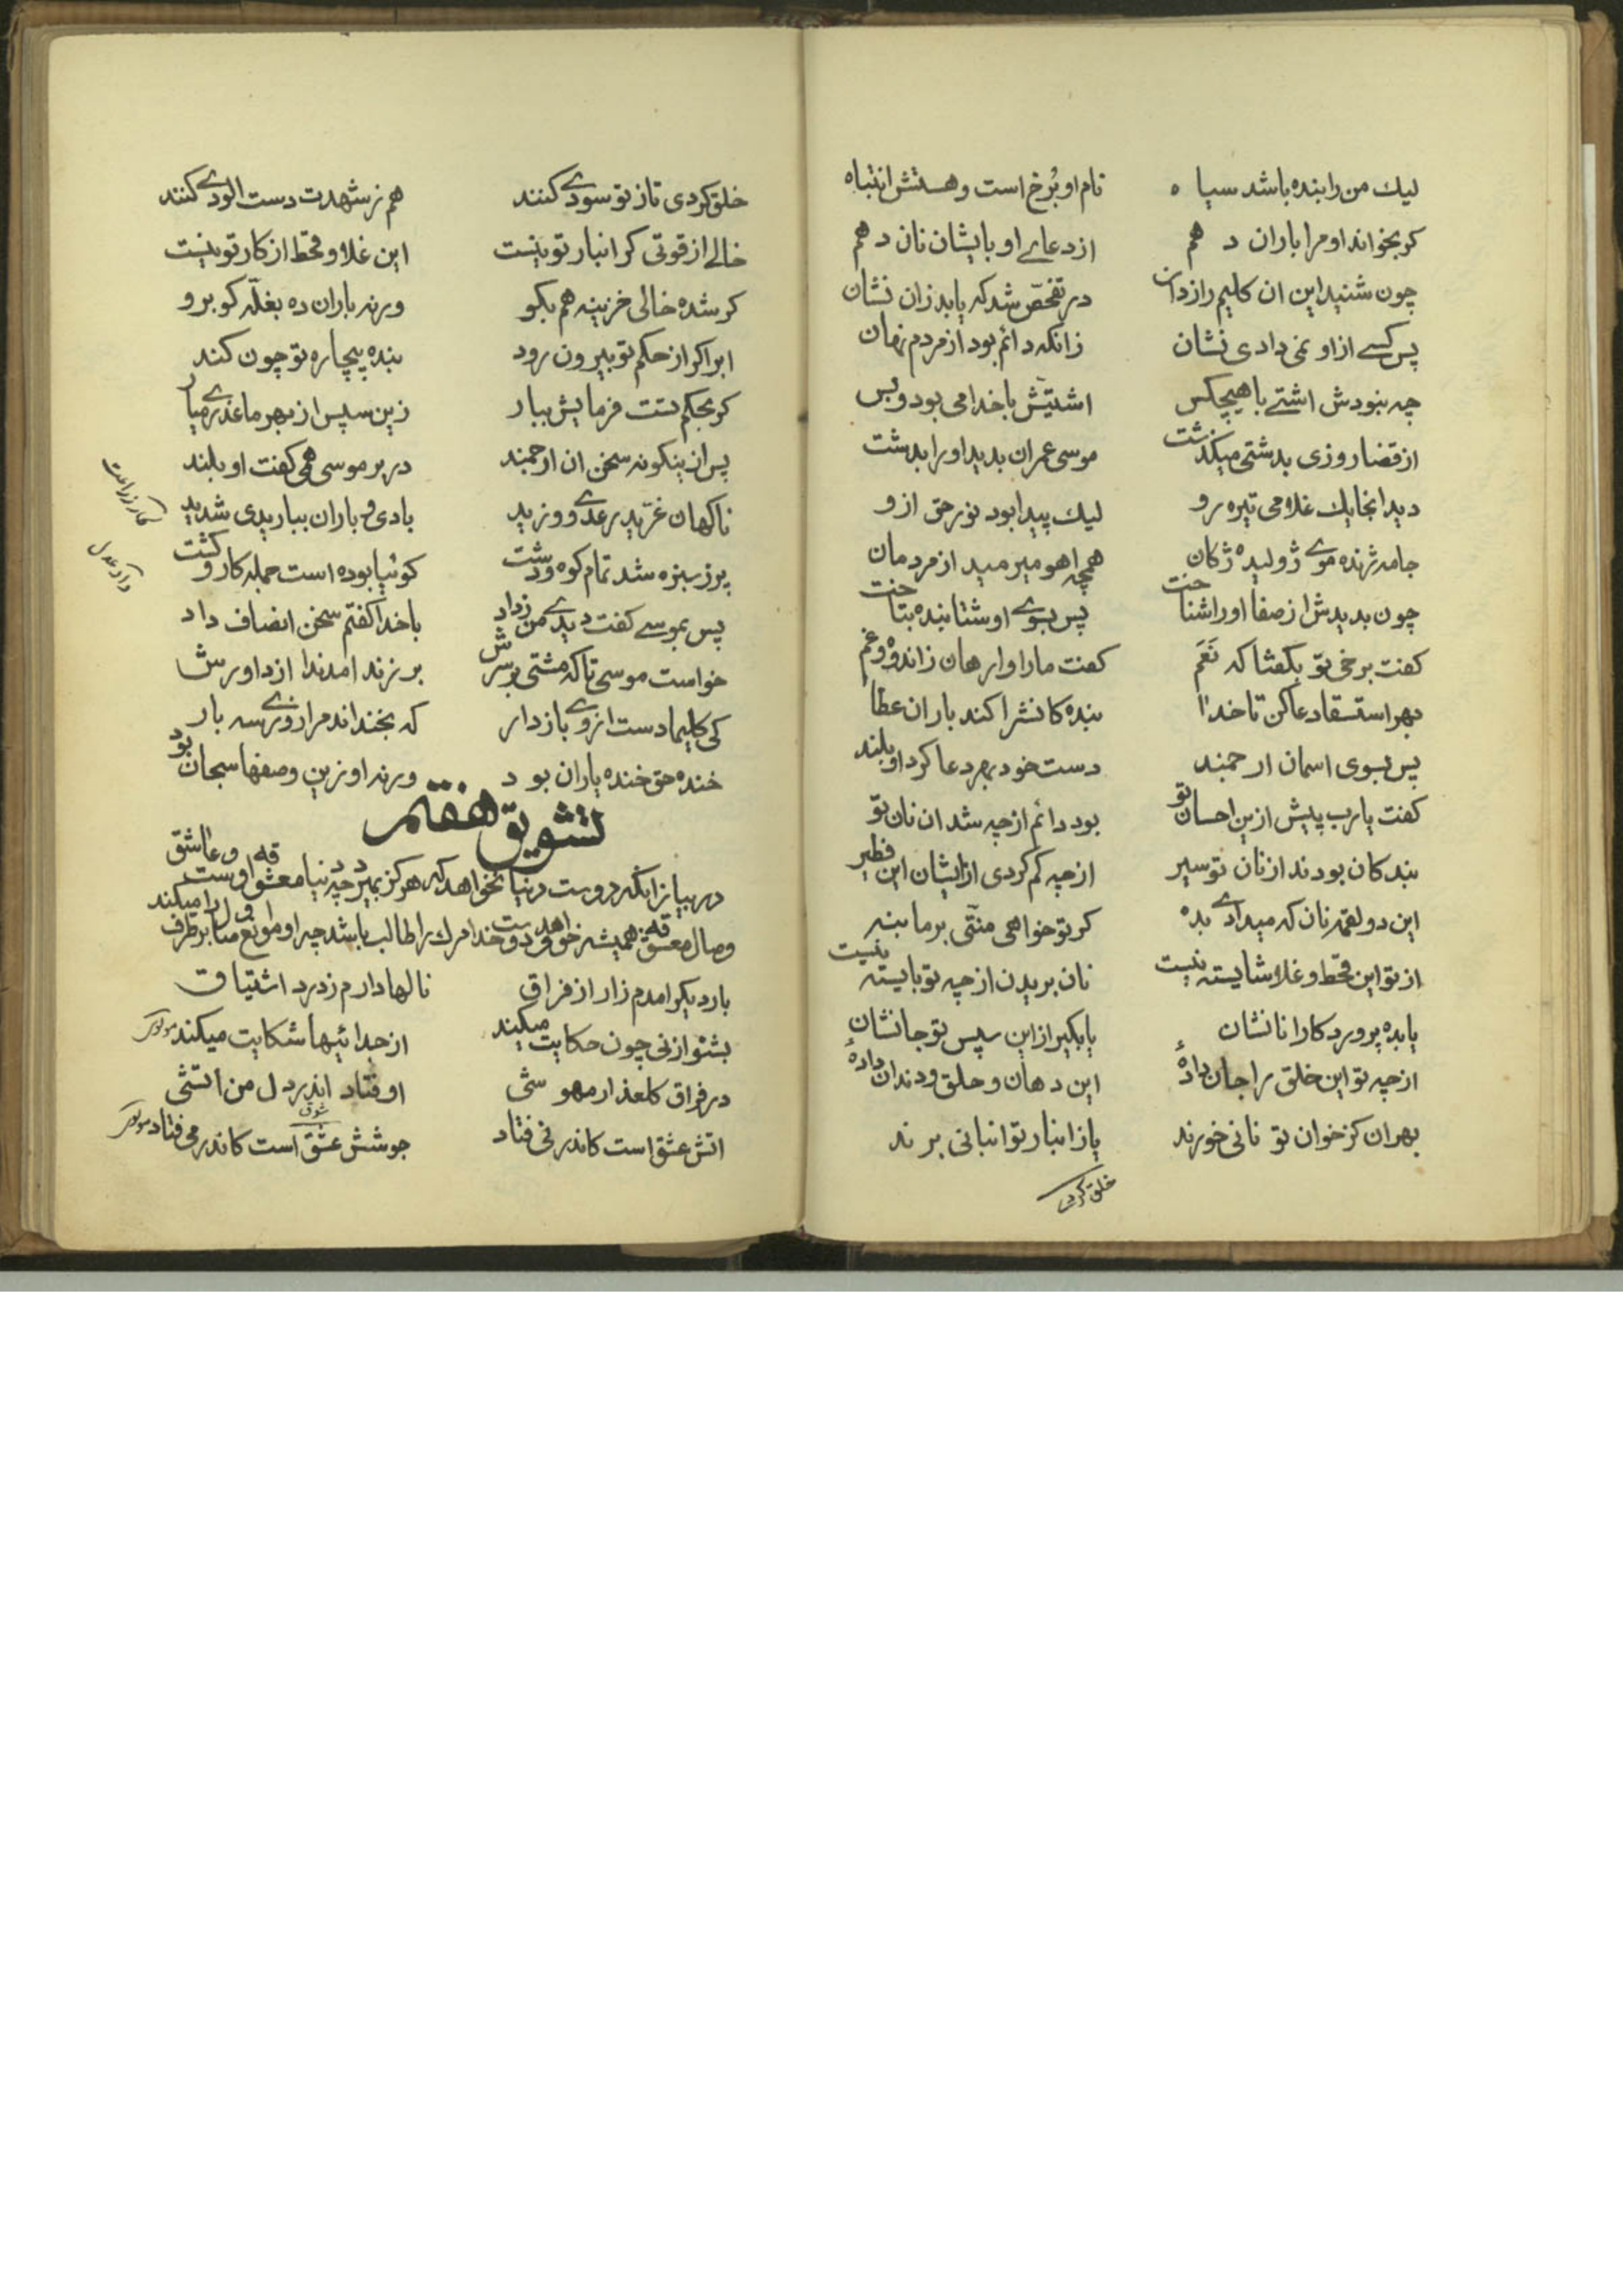 لیك من را بنده باشد سیاه    نام او بُرخ است و هستش انتباه
کر بخواند او مرا باران دهم    از دعاے او بایشان نان دهم
چون شنید این ان کلیم رازدان    در تفحّص شد که یابد زان نشان
پس کسے از او نمی دادی نشان    زانکه دائم بود از مردم نهان
چه نبودش اشتے با هیچکس    اشتیّش با خدا می بود و بس
از قضا روزی بدشتی میکذشت    موسی عمران بدید او را بدشت
دید انجا یك غلامی تیره رو    لیك پیدا بود نور حق از و
جامه ژنده موے ژولیده ژکان    همچه اهو میرمید از مردمان
چون بدیدش از صفا او را شناخت    پس بسوے او شتابنده بتاخت
کفت برخی تو بکفتا که نَعَم    کفت ما را وارهان ز اندوه و غم
بهر استسقا دعا کن تا خدا    بنده کانش را کند باران عطا
پس بسوی اسمان ارجمند    دست خود بهر دعا کرد او بلند
کفت یا رب پیش از این احسان تو    بود دائم از چه شد ان نان تو
بندکان بودند از نان تو سیر    از چه کم کردی از ایشان این فطیر
این دو لقمه نان که میدادے بده    کر تو خواهی منّتی بر ما بنه
از تو این قحط و غلا شایسته نیست    نان بریدن از چه تو بایسته نیست
یا بده پروردکارا نانشان    یا بکیر از این سپس تو جانشان
از چه تو این خلق را جان دادهٔ    این دهان و حلق و دندان دادهٔ
بهر ان کز خوان تو نانی خورند    یا ز انبار تو انبانی برند
خلق کردی
خلق کردی تا ز تو سودے کنند    هم ز شهدت دست الودے کنند
خالے از قوتی کر انبار تو نیست    این غلا و قحط از کار تو نیست
کر شده خالی خزینه هم بکو    ورنه باران ده بغلّه کو برو
ابر اکر از حکم تو بیرون رود    بنده بیچاره تو چون کند
کر بحکم تست فرمایش ببار    زین سپس از بهر ما عذرے میار
پس از ینکونه سخن ان ارجمند    در بر موسی همی کفت او بلند
ناکهان غرّید رعدے و وزید    بادی و باران بباریدی شدید
پر ز سبزه شد تمام کوه و دشت    کوئیا بوده است جمله کار و کشت
پس بموسے کفت دیدے من ز داد    با خدا کفتم سخن انصاف داد
خواست موسی تا که مشتی بر سرش    بر زند امد ندا از داورش
کی کلیما دست از وے باز دار    که بخنداند مرا روزے سه بار
خنده حق خنده باران بود    ورنه او زین وصفها سبحان بود
تشویق هفتم
در بیان انکه دوست در دنیا نخواهد که هرکز بمیرد چه دنیا معشوقه اوست و عاشق
وصال معشوقه همیشه خواهد و دوست خدا مرك را طالب باشد چه او موانع را بر طرف میکند
بار دیکر امدم زار از فراق    نالها دارم ز درد اشتیاق
بشنو از نی چون حکایت میکند    از جدائیها شکایت میکند
در فراق کلعذار مهوشی    اوفتاد اندر دل من اتشی
اتش عشق است کاندر نی فتاد    جوشش عشق است کاندر می فتاد